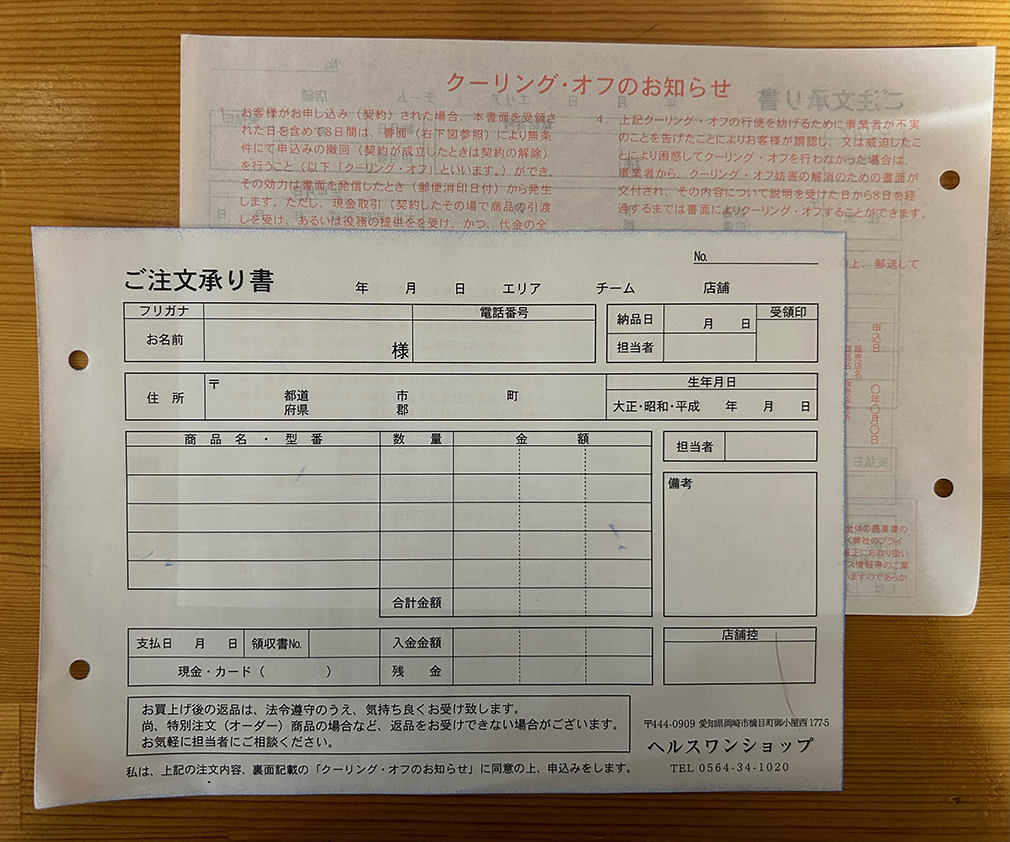 クーリング・オフのお知らせ
1. お客様がお申し込み（契約）された場合、本書面を受領さ
れた日を含めて8日間は、書面（右下図参照）により無条
件にて申込みの撤回（契約が成立したときは契約の解除）
を行うこと（以下「クーリング・オフ」といいます。）ができ、
その効力は書面を発信したとき（郵便消印日付）から発生
します。ただし、現金取引（契約したその場で商品の引渡
しを受け、あるいは役務の提供をを受け、かつ、代金の全
4. 上記クーリング・オフの行使を妨げるために事業者が不実
のことを告げたことによりお客様が誤認し、又は威迫したこ
とにより困惑してクーリング・オフを行わなかった場合は、
事業者から、クーリング・オフ妨害の解消のための書面が
交付され、その内容について説明を受けた日から8日を経
過するまでは書面によりクーリング・オフすることができます。
の上、郵送して
申込日
〇年〇月〇日
販売店名
全体の最重要の
く弊社のプライ
正にお取り扱い
ス情報等のご案
いますのであらか
No.
ご注文承り書
年 月 日 エリア チーム 店舗
フリガナ 電話番号
お名前 様
納品日 月 日 受領印
担当者
住所 〒 都道 市 町
府県 郡
生年月日
大正・昭和・平成 年 月 日
商品名・型番 数量 金額
担当者
備考
合計金額
支払日 月 日 領収書No. 入金金額
現金・カード（ ） 残金
店舗控
お買上げ後の返品は、法令遵守のうえ、気持ち良くお受け致します。
尚、特別注文（オーダー）商品の場合など、返品をお受けできない場合がございます。
お気軽に担当者にご相談ください。
私は、上記の注文内容、裏面記載の「クーリング・オフのお知らせ」に同意の上、申込みをします。
〒444-0909 愛知県岡崎市橋目町御小屋西177-5
ヘルスワンショップ
TEL 0564-34-1020